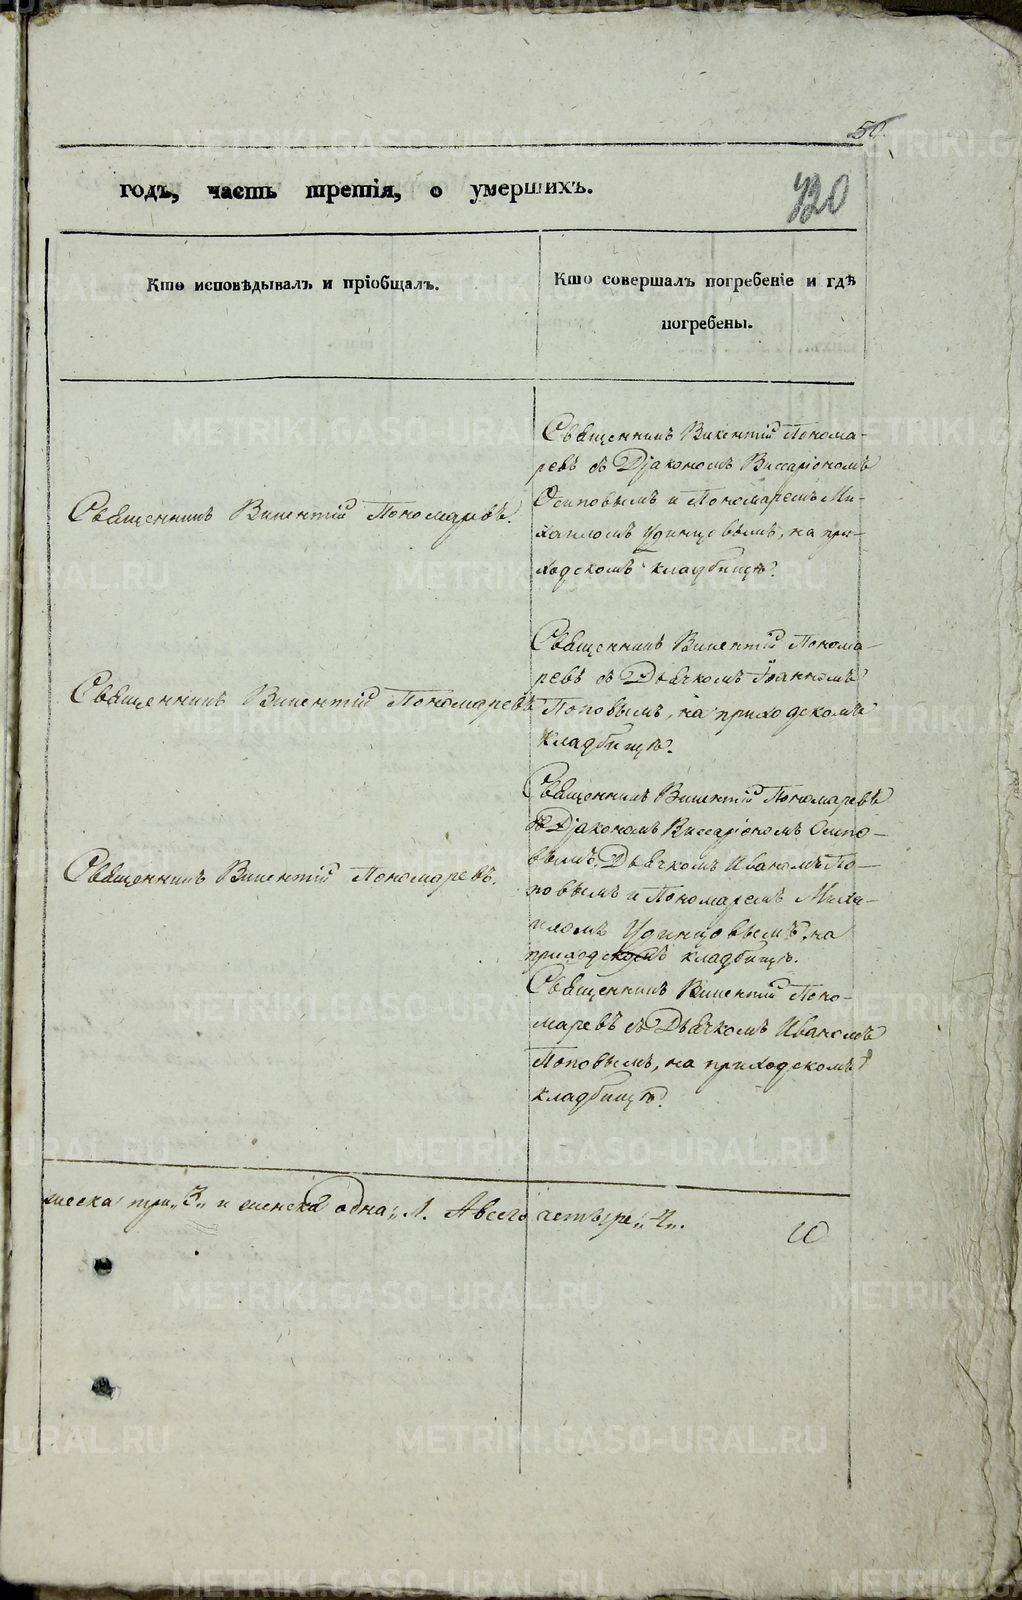 50.
годъ, часть третія, о умершихъ.
720
Кто исповѣдывалъ и пріобщалъ.
Кто совершалъ погребеніе и гдѣ
погребены.
Священникъ Викентій Понома-
ревъ съ Діакономъ Виссаріономъ
Осиповымъ и Пономаремъ Ми-
хаиломъ Удинцовымъ, на при-
ходскомъ кладбищѣ.
Священникъ Викентій Пономаревъ.
Священникъ Викентій Понома-
ревъ съ Дьячкомъ Іоанномъ
Поповымъ, на приходскомъ
кладбищѣ.
Священникъ Викентій Пономаревъ
Священникъ Викентій Пономаревъ
съ Діакономъ Виссаріономъ Осипо-
вымъ, Дьячкомъ Иваномъ По-
повымъ и Пономаремъ Миха-
иломъ Удинцовымъ, на
приходскомъ кладбищѣ.
Священникъ Викентій Пономаревъ.
Священникъ Викентій Поно-
маревъ съ Дьячкомъ Иваномъ
Поповымъ, на приходскомъ
кладбищѣ.
мужеска три „3„ и женска одна „1. А всего четыре „4„.
METRIKI.GASO-URAL.RU